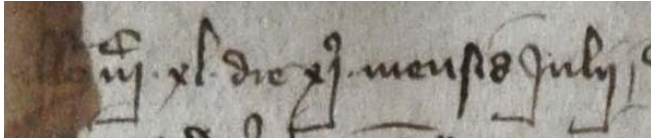 iiijᶜ xl die xj mensis Julij